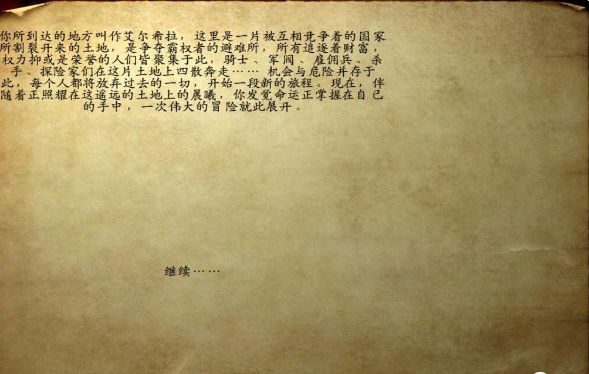 你所到达的地方叫作艾尔希拉，这里是一片被互相竞争着的国家
所割裂开来的土地，是争夺霸权者的避难所，所有追逐着财富，
权力抑或是荣誉的人们皆聚集于此，骑士、军阀、雇佣兵、杀
手、探险家们在这片土地上四散奔走……机会与危险并存于
此，每个人都将放弃过去的一切，开始一段新的旅程。现在，伴
随着正照耀在这遥远的土地上的晨曦，你发觉命运正掌握在自己
的手中，一次伟大的冒险就此展开。
继续……